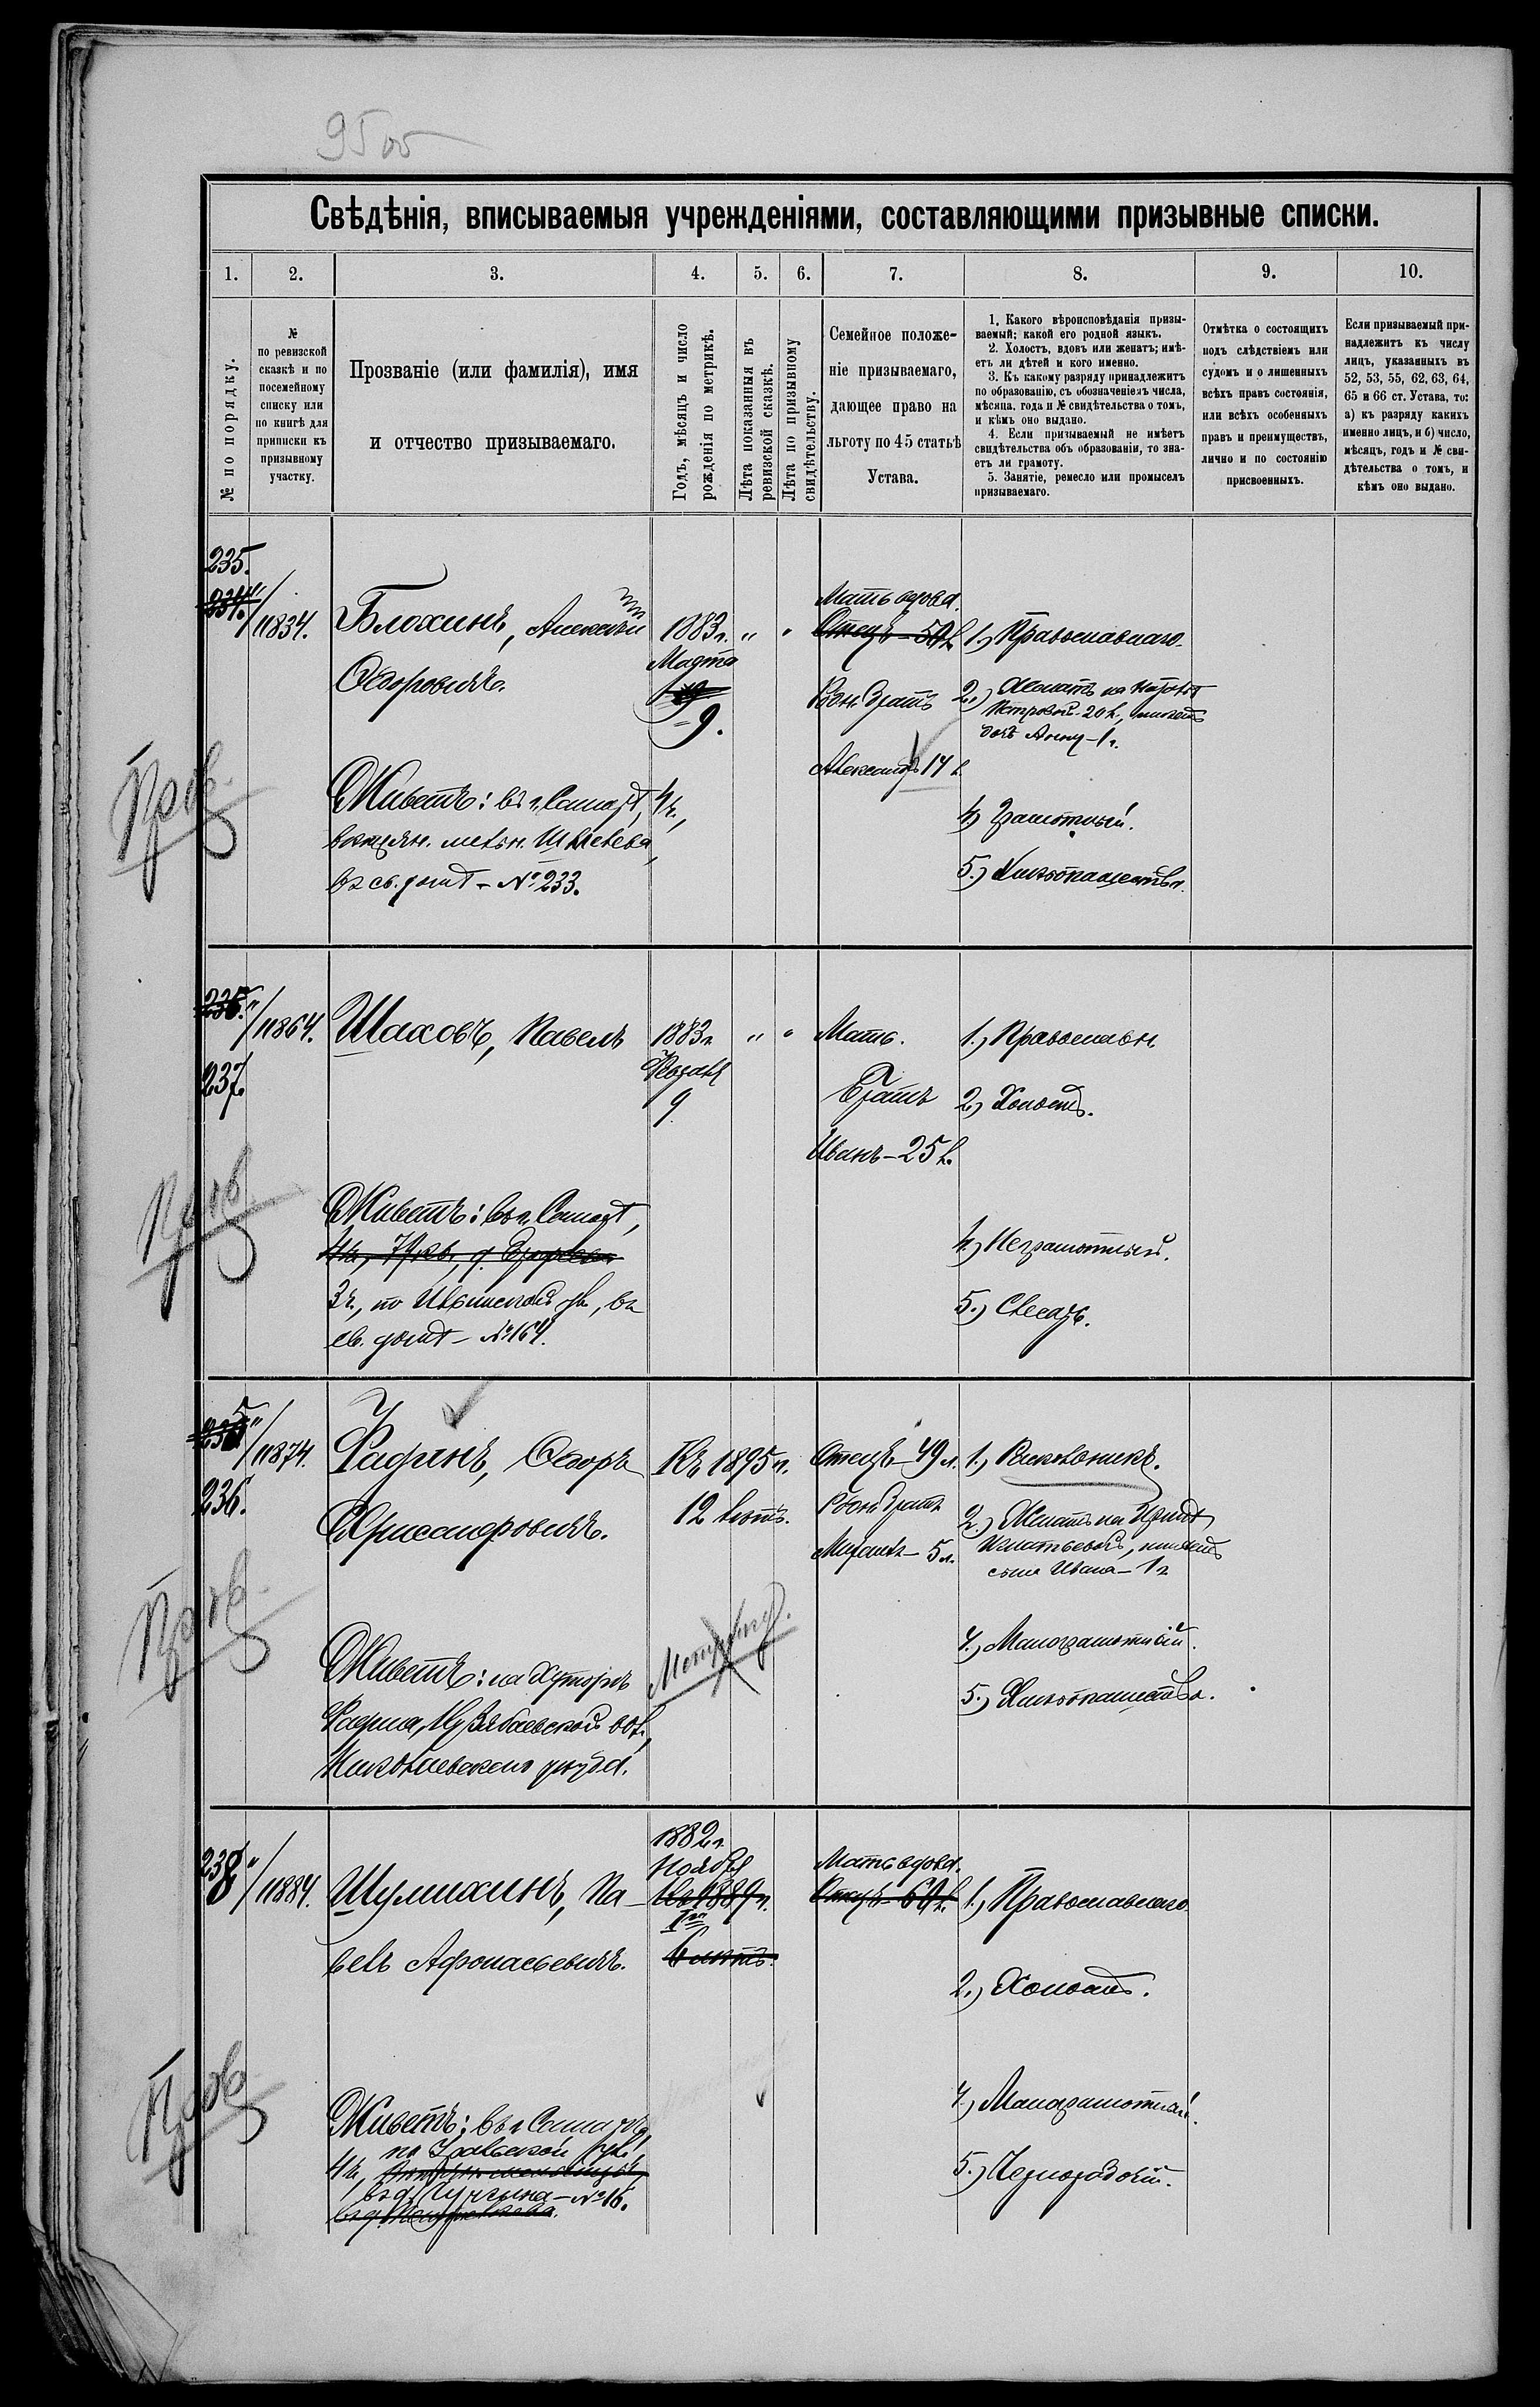 95об
Свѣдѣнія, вписываемыя учрежденіями, составляющими призывные списки.
1. 2. 3. 4. 5. 6. 7. 8. 9. 10.
№ по порядку.
№
по ревизской
сказкѣ и по
посемейному
списку или
по книгѣ для
приписки къ
призывному
участку.
Прозваніе (или фамилія), имя
и отчество призываемаго.
Годъ, мѣсяцъ и число
рожденія по метрикѣ.
Лѣта показанныя въ
ревизской сказкѣ.
Лѣта по призывному
свидѣтельству.
Семейное положе-
ніе призываемаго,
дающее право на
льготу по 45 статьѣ
Устава.
1. Какого вѣроисповѣданія призы-
ваемый; какой его родной языкъ.
2. Холостъ, вдовъ или женатъ; имѣ-
етъ ли дѣтей и кого именно.
3. Къ какому разряду принадлежитъ
по образованію, съ обозначеніемъ числа,
мѣсяца, года и № свидѣтельства о томъ,
и кѣмъ оно выдано.
4. Если призываемый не имѣетъ
свидѣтельства объ образованіи, то зна-
етъ ли грамоту.
5. Занятіе, ремесло или промыселъ
призываемаго.
Отмѣтка о состоящихъ
подъ слѣдствіемъ или
судомъ и о лишенныхъ
всѣхъ правъ состоянія,
или всѣхъ особенныхъ
правъ и преимуществъ,
лично и по состоянію
присвоенныхъ.
Если призываемый при-
надлежитъ къ числу
лицъ, указанныхъ въ
52, 53, 55, 62, 63, 64,
65 и 66 ст. Устава, то:
а) къ разряду какихъ
именно лицъ, и б) число,
мѣсяцъ, годъ и № сви-
дѣтельства о томъ, и
кѣмъ оно выдано.
235.
234.
11834.
Блохинъ, Алексѣй
Ѳедоровичъ.
Живетъ: въ г. Самарѣ, 4 ч.,
въ св. домѣ - № 233.
1883 г.
Марта
9.
" "
Мать вдова.
Отецъ - 50 л.
Родн. братъ
Александръ 14 л.
1.) Православнаго
2.) Женатъ на
Петровой 20 л., имѣетъ
дочь Анну - 1 г.
4.) Грамотный.
5.) Хлѣбопашество.
Пров.
11864.
237.
Шаховъ, Павелъ
Живетъ: въ г. Самарѣ,
3 ч., по Ильинской ул., въ
св. домѣ - № 164.
1883 г.
Января
9
" "
Мать.
Братъ
Иванъ - 25 л.
1.) Православн.
2.) Холостъ.
4.) Неграмотный.
5.) Слесарь.
Пров.
11874.
236.
Ѳедоръ
Живетъ: на хуторѣ
Николаевскаго уѣзда.
Къ 1895 г.
12 лѣтъ.
Отецъ - 49 л.
Родн. братъ
Михаилъ - 5 л.
1.) Раскольникъ.
2.) Женатъ на
Игнатьевой, имѣетъ
сына Ивана - 1 г.
4.) Малограмотный.
5.) Хлѣбопашество.
Метрику.
Пров.
238
11884.
Шумихинъ, Па-
велъ Афонасьевичъ.
Живетъ: въ г. Самарѣ,
по Уральской ул.,
4 ч.,
№ 16.
1882 г.
Ноября
Къ 1889 г.
6 лѣтъ.
Мать вдова.
Отецъ - 60 л.
1.) Православнаго
2.) Холостъ.
4.) Малограмотный.
5.) Чернорабочій.
Пров.